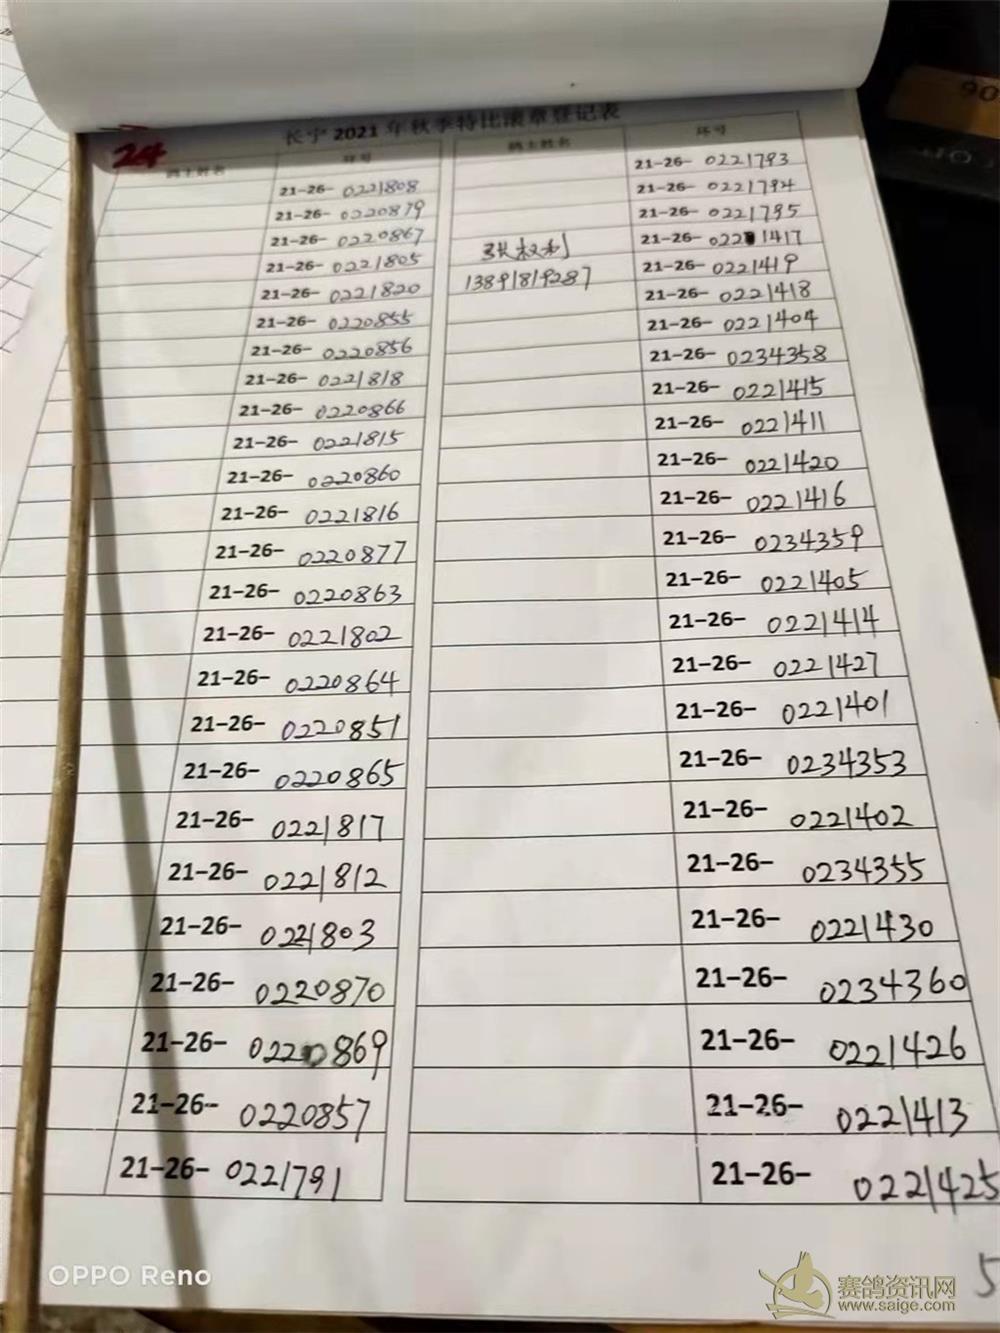 长宁 2021 年秋季特比滚章登记表
24
鸽主姓名 环号
21-26- 0221808
21-26- 0220879
21-26- 0220867
21-26- 0221805
21-26- 0221820
21-26- 0220855
21-26- 0220856
21-26- 0221818
21-26- 0220866
21-26- 0221815
21-26- 0220860
21-26- 0221816
21-26- 0220877
21-26- 0220863
21-26- 0221802
21-26- 0220864
21-26- 0220851
21-26- 0220865
21-26- 0221817
21-26- 0221812
21-26- 0221803
21-26- 0220870
21-26- 0220869
21-26- 0220857
21-26- 0221791
鸽主姓名 环号
21-26- 0221793
21-26- 0221794
21-26- 0221795
张权利 21-26- 0221417
13891819287 21-26- 0221419
21-26- 0221418
21-26- 0221404
21-26- 0234358
21-26- 0221415
21-26- 0221411
21-26- 0221420
21-26- 0221416
21-26- 0234359
21-26- 0221405
21-26- 0221414
21-26- 0221427
21-26- 0221401
21-26- 0234353
21-26- 0221402
21-26- 0234355
21-26- 0221430
21-26- 0234360
21-26- 0221426
21-26- 0221413
21-26- 0221425
5
OPPO Reno
赛鸽资讯网
www.saige.com